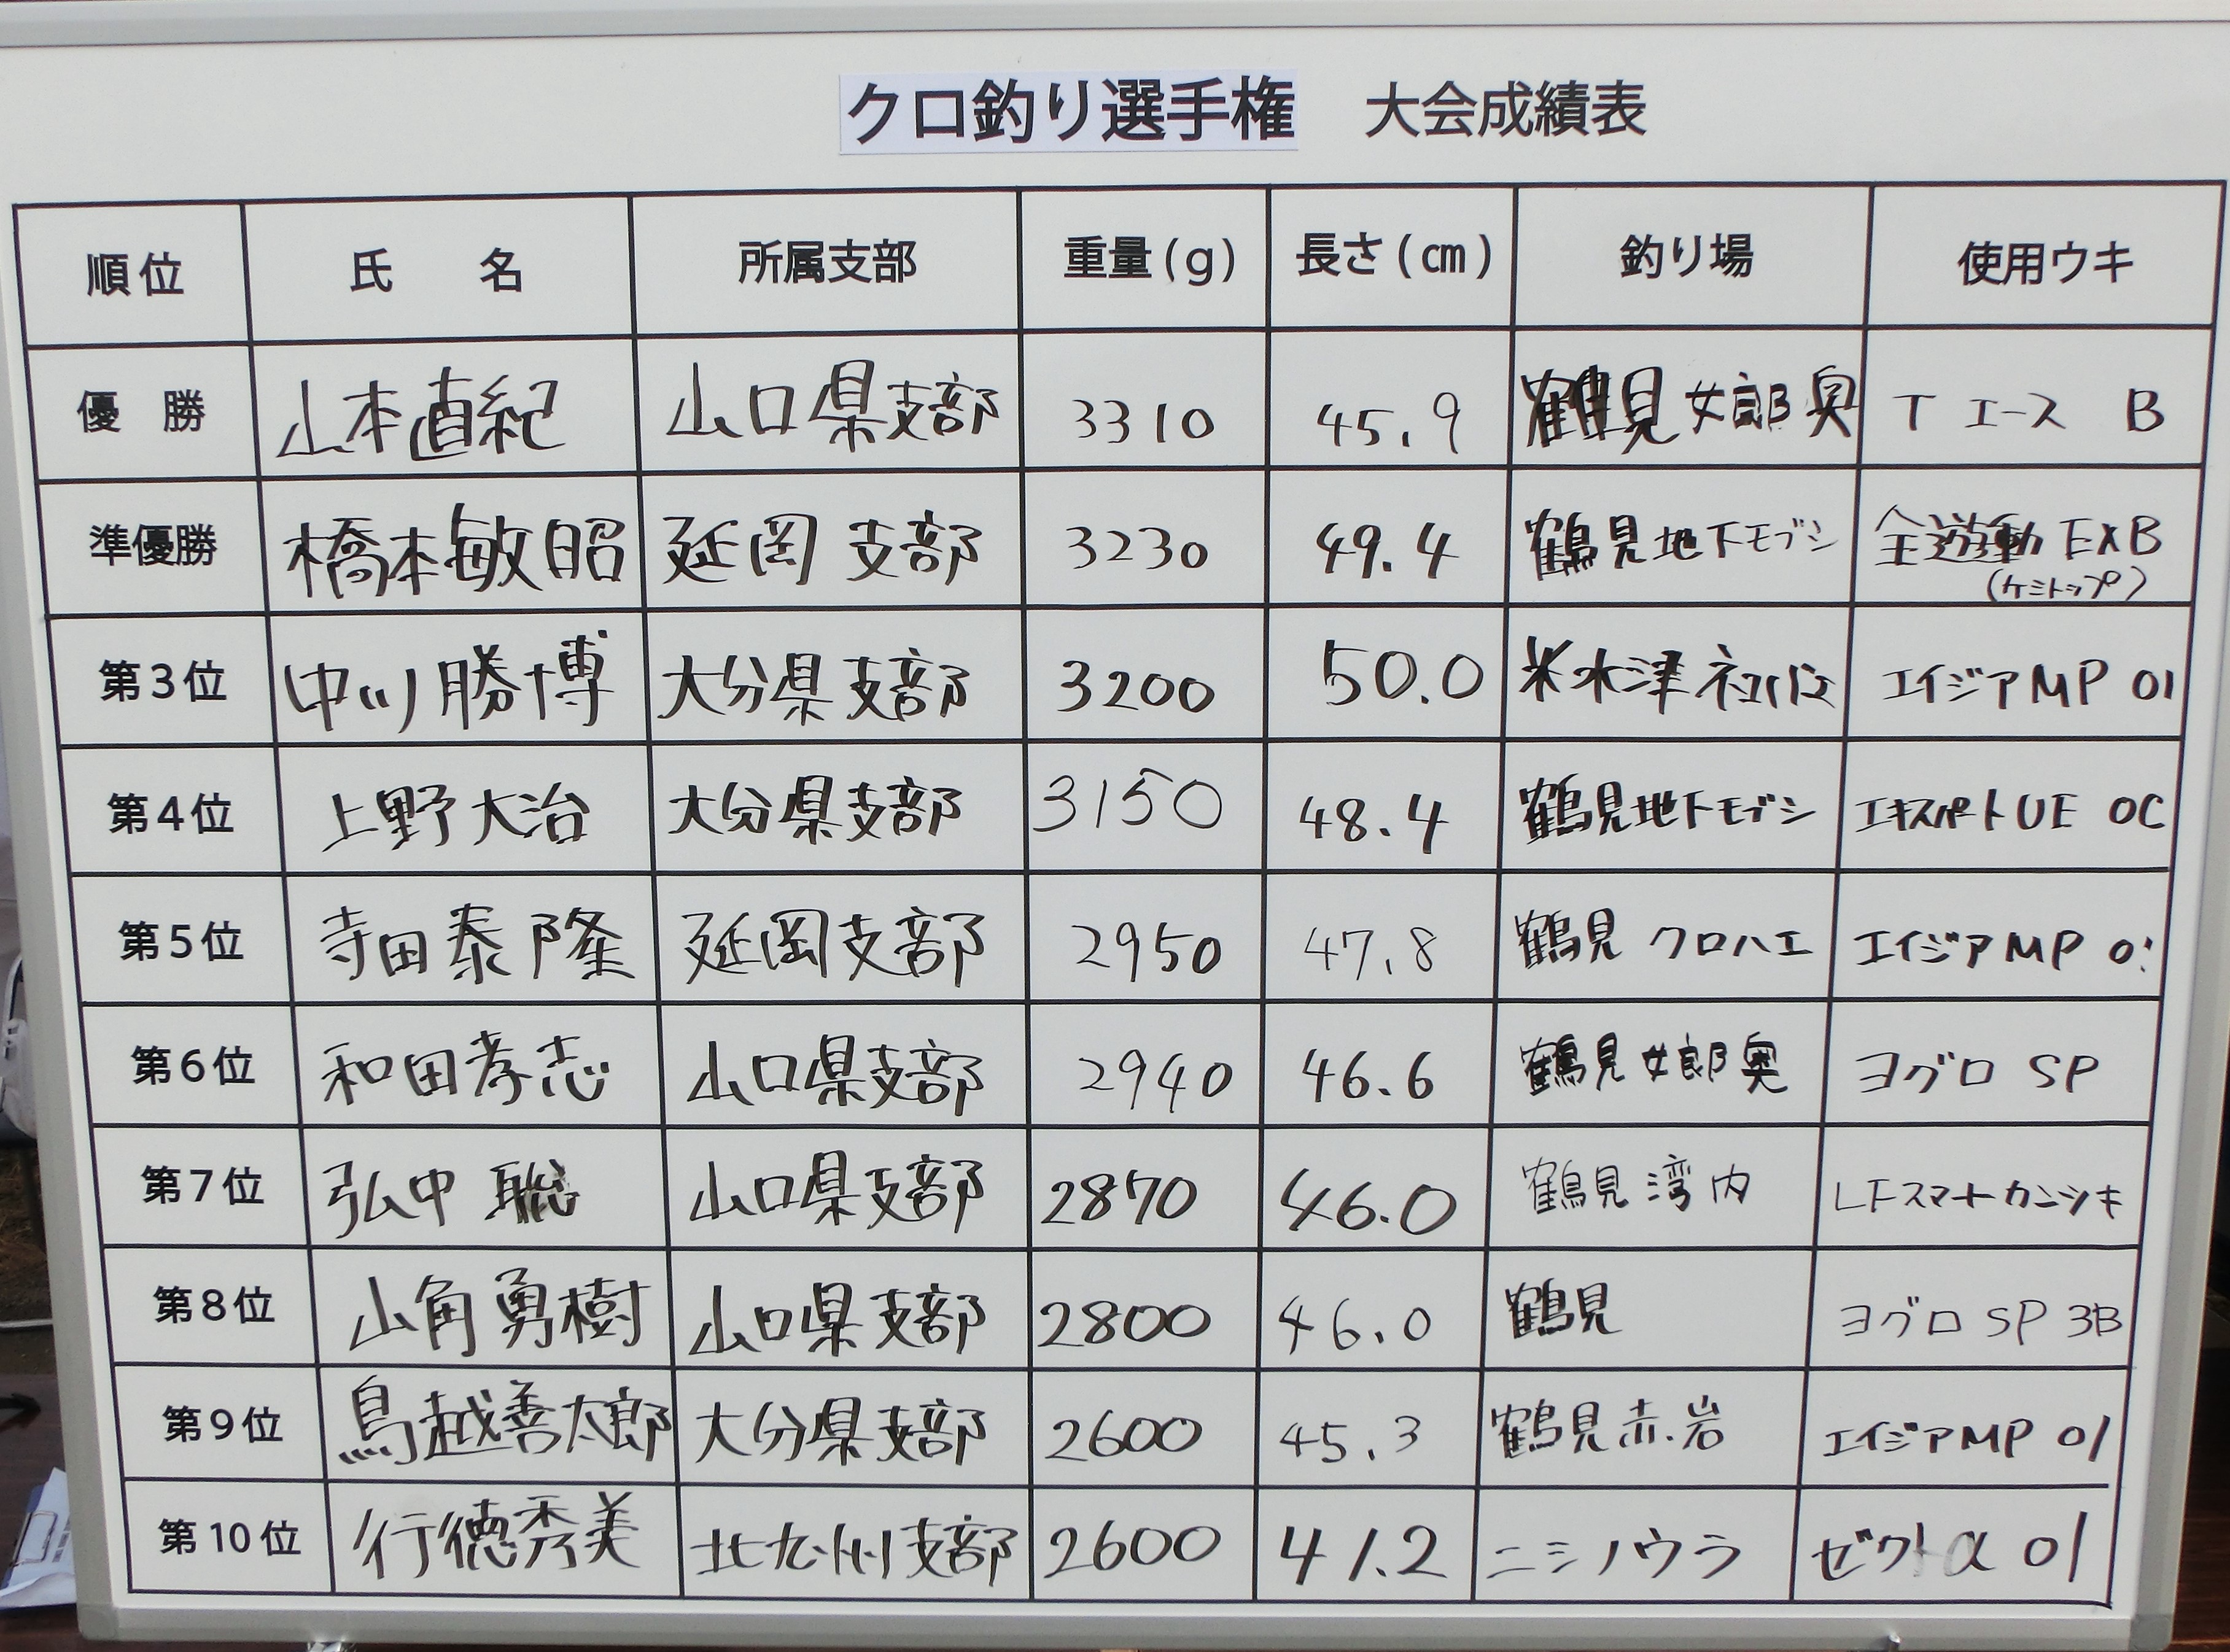 クロ釣り選手権 大会成績表
順位 氏名 所属支部 重量(g) 長さ(㎝) 釣り場 使用ウキ
優勝 山本直紀 山口県支部 3310 45.9 鶴見 女郎奥 T エース B
準優勝 橋本敏昭 延岡支部 3230 49.4 鶴見地下モブシ 全遊動 EXB
(ケミトップ)
第3位 中川勝博 大分県支部 3200 50.0 米水津 エイジア MP 01
第4位 上野大治 大分県支部 3150 48.4 鶴見地下モブシ エキスパート UE 0C
第5位 寺田泰隆 延岡支部 2950 47.8 鶴見 クロハエ エイジア MP
第6位 和田孝志 山口県支部 2940 46.6 鶴見 女郎奥 ヨグロ SP
第7位 弘中 聡 山口県支部 2870 46.0 鶴見 湾内 LFスマート カンシキ
第8位 山角勇樹 山口県支部 2800 46.0 鶴見 ヨグロ SP 3B
第9位 鳥越善太郎 大分県支部 2600 45.3 鶴見赤岩 エイジア MP 01
第10位 行徳秀美 北九州支部 2600 41.2 ニシノウラ ゼクト α 01